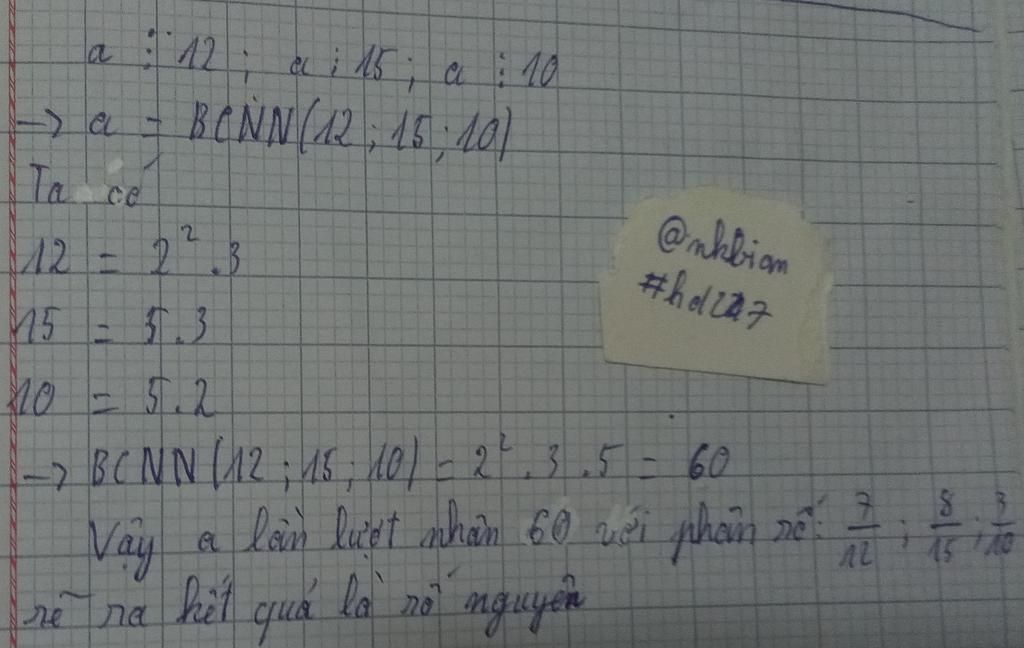 a ⋮ 12 ; a ⋮ 15 ; a ⋮ 10
→ a = BCNN(12 ; 15 ; 10)
Ta có
12 = 2² . 3
15 = 5 . 3
10 = 5 . 2
→ BCNN(12 ; 15 ; 10) = 2² . 3 . 5 = 60
Vậy a lần lượt nhân 60 với phân số: 7/12 ; 8/15 ; 3/10
sẽ ra kết quả là số nguyên
@nkbiom